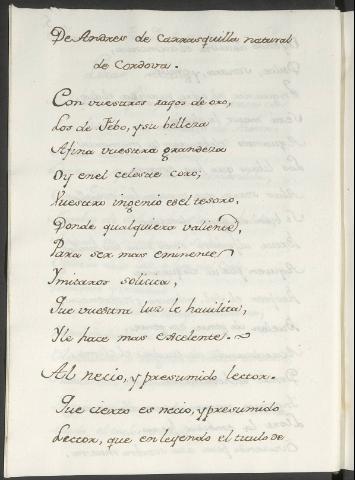 De Andres de Carrasquilla natural
de Cordova.
Con vuestros rayos de oro,
Los de Febo, y su belleza
Afina vuestra grandeza
Oy en el celeste coro;
Vuestro ingenio es el tesoro,
Donde qualquiera valiente,
Para ser mas eminente
Ymitaros solicita,
Que vuestra luz le havilita,
Y le hace mas escelente.
Al necio, y presumido lector.
Que cierto es necio, y presumido
Lector, que en leyendo el titulo de